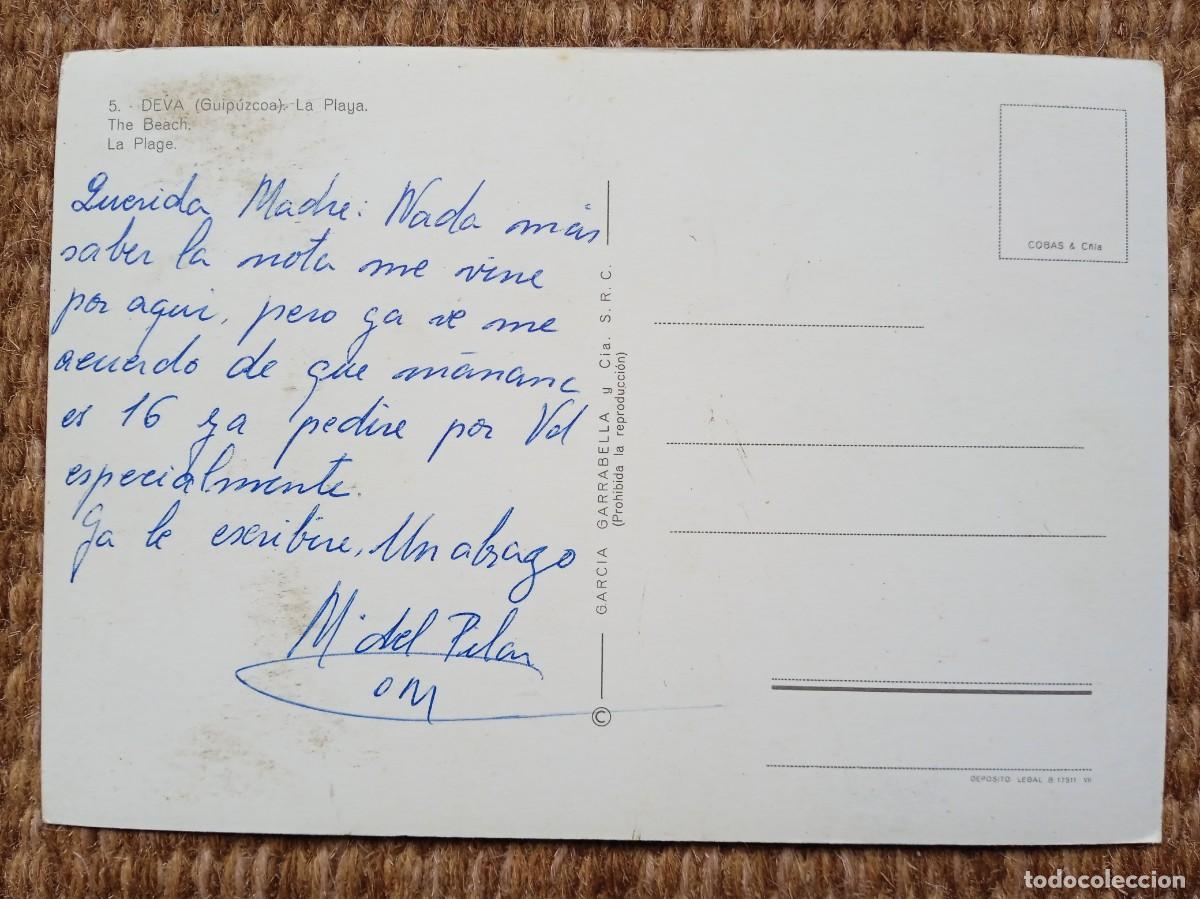 5. - DEVA (Guipúzcoa).- La Playa.
The Beach.
La Plage.
Querida Madre: Nada más
saber la nota me vine
por aqui, pero ya ve me
acuerdo de que mañana
es 16 ya pedire por Vd
especialmente.
Ya le escribire, Un abrazo
Mª del Pilar
OM
GARCIA GARRABELLA y Cia. S. R. C.
(Prohibida la reproducción)
©
COBAS & Cñia
DEPOSITO LEGAL B 17511 VII
todocoleccion